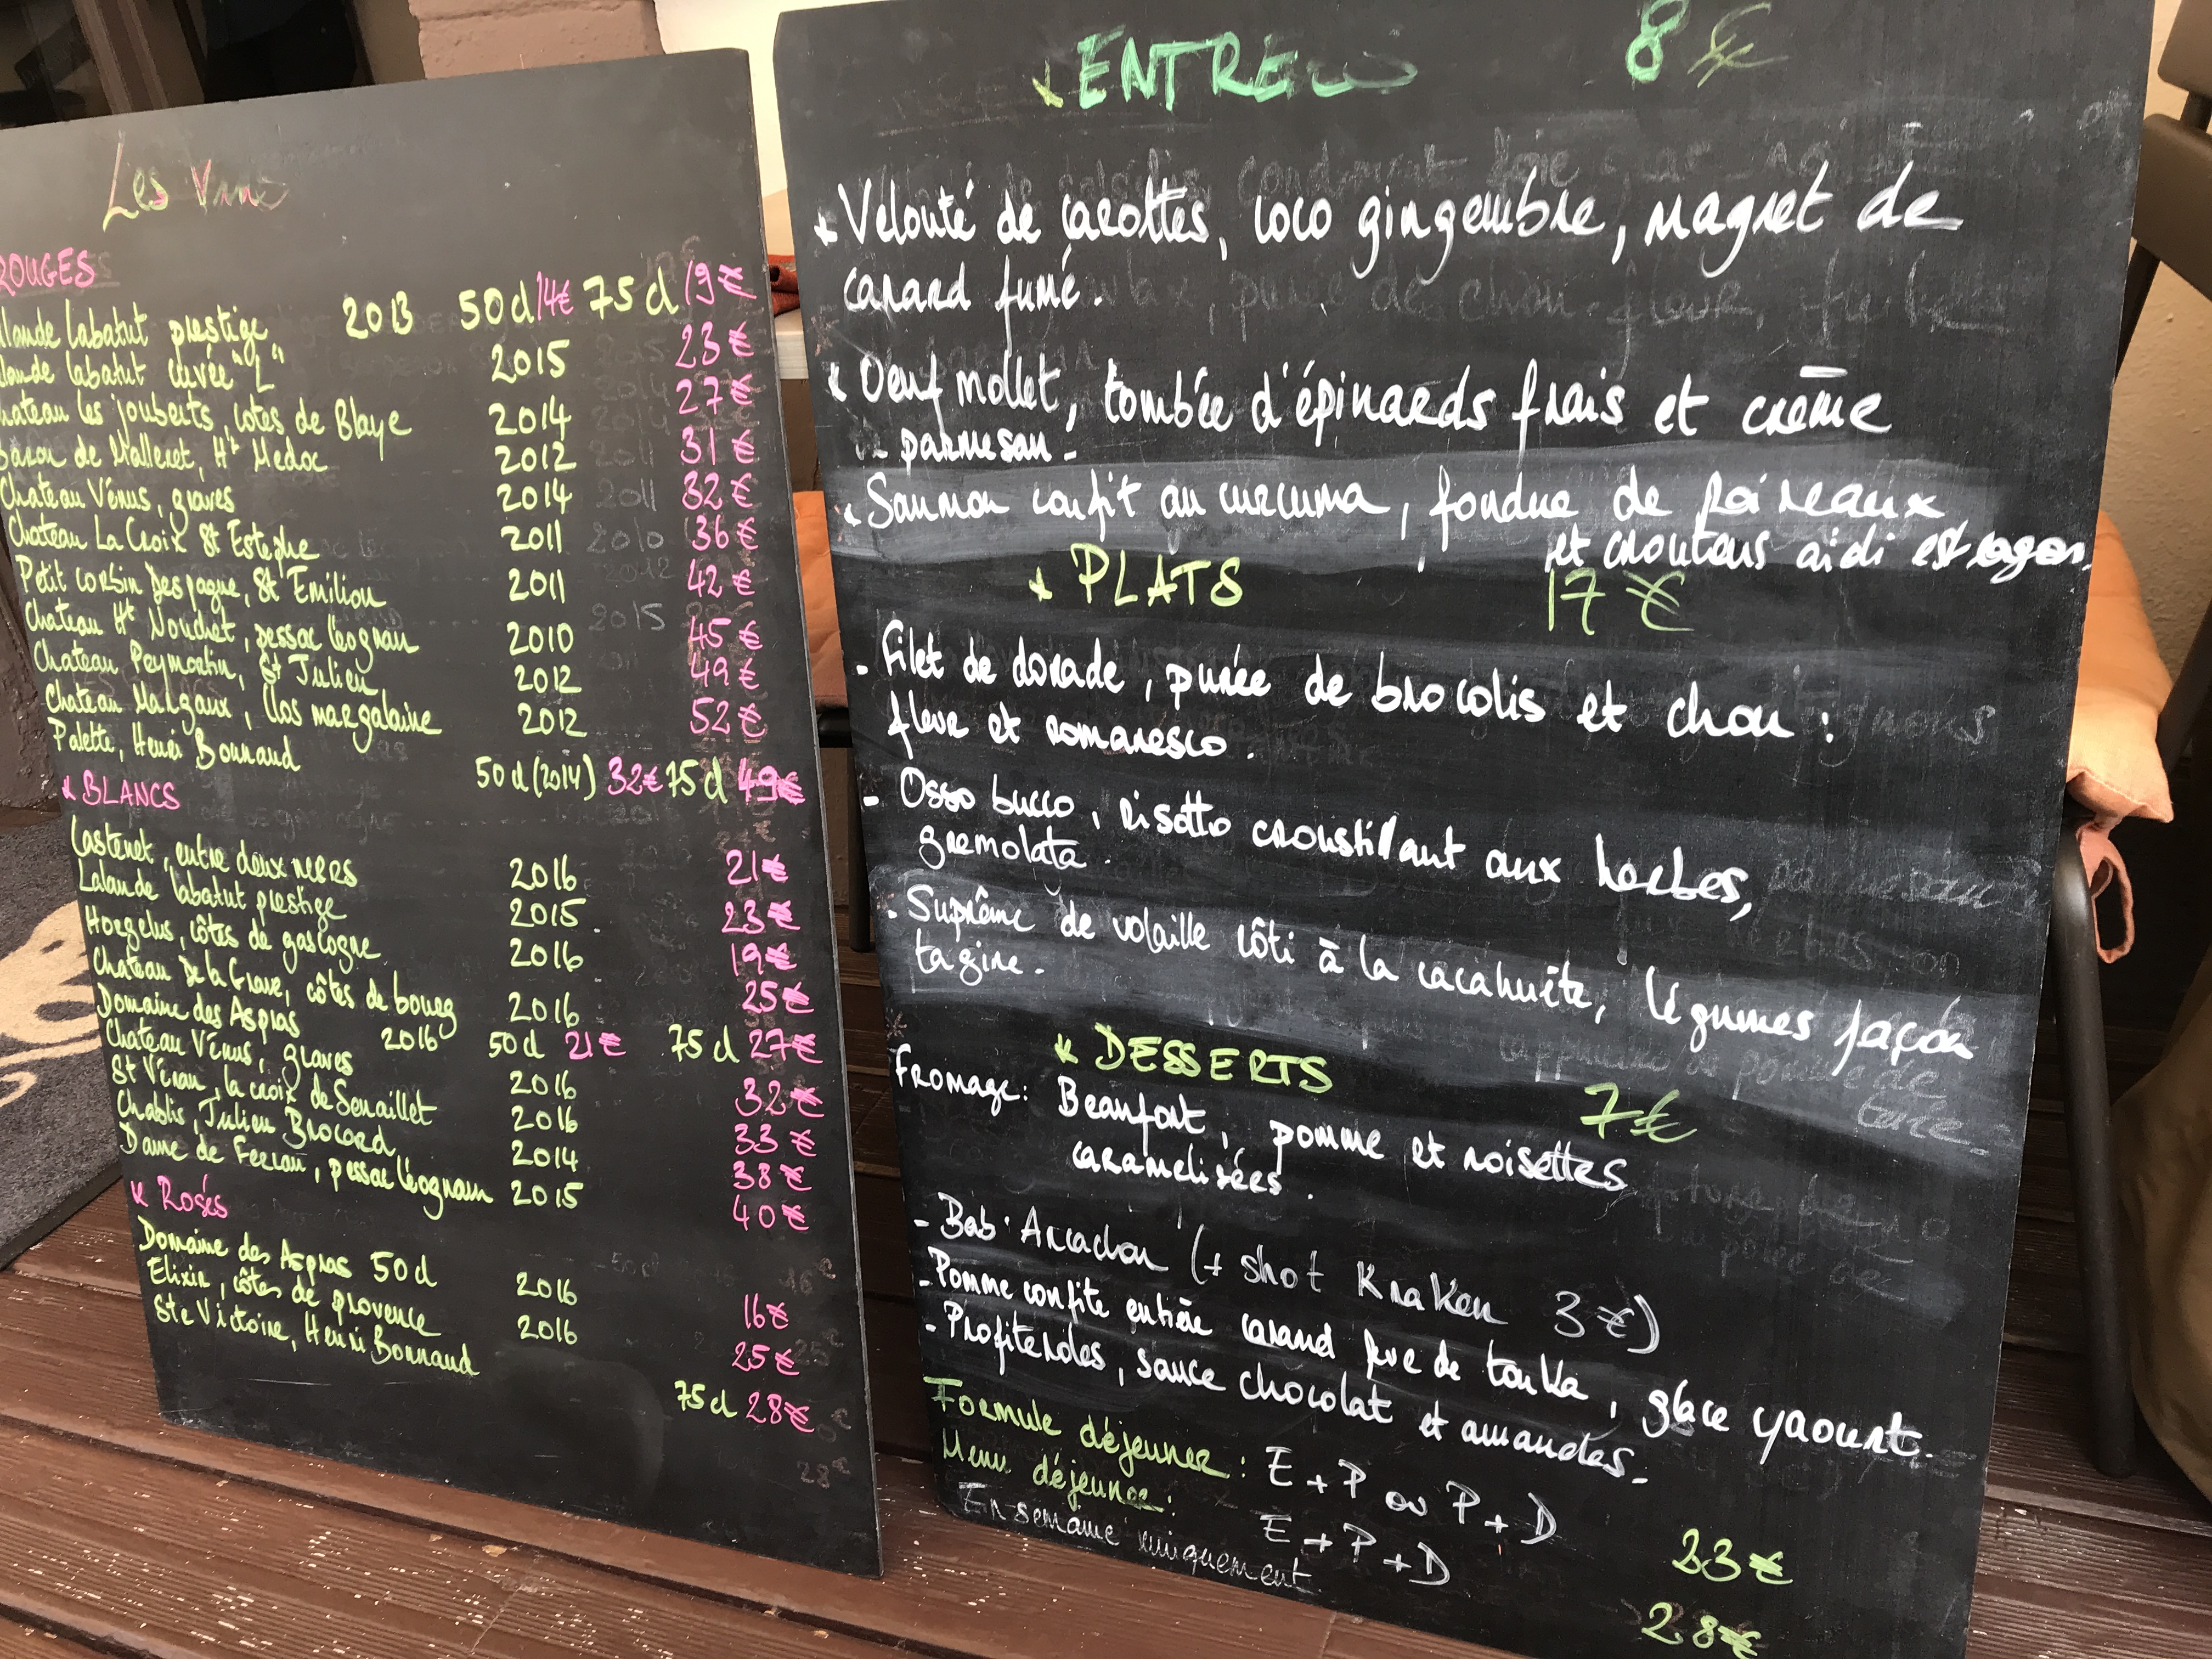 Les Vins
ROUGES
lande labatut prestige 2013 50 d 14€ 75 d 19€
lande labatut cuvée "L" 2015 23€
hateau les jouberts, cotes de Blaye 2014 27€
Baron de Malleret, Ht Medoc 2012 31€
Chateau Vénus, graves 2014 32€
Chateau La Croix St Estephe 2011 36€
Petit corbin Despagne, St Emilion 2011 42€
Chateau Ht Nouchet, pessac léognan 2010 45€
Chateau Peymartin, St Julien 2012 49€
Chateau Margaux, Clos margalaine 2012 52€
Palette, Henri Bonnaud 50 d (2014) 32€ 75 d 49€
BLANCS
Castenet, entre deux mers 2016 21€
Lalande labatut prestige 2015 23€
Horgelus, côtes de gascogne 2016 19€
Chateau De la Grave, côtes de bourg 2016 25€
Domaine des Aspras 2016 50 d 21€ 75 d 27€
Chateau Vénus, graves 2016 32€
St Véran, la croix de Senaillet 2016 33€
Chablis, Julien Brocard 2014 38€
Dame de Ferran, pessac léognan 2015 40€
Rosés
Domaine des Aspras 50 d 2016 16€
Elixir, côtes de provence 2016 25€
Ste Victoire, Henri Bonnaud 75 d 28€
ENTREES 8€
Velouté de carottes, coco gingembre, magret de
canard fumé.
Oeuf mollet, tombée d'épinards frais et crème
parmesan.
Saumon confit au curcuma, fondue de poireaux
et croutons aïoli estragon.
PLATS 17€
- Filet de dorade, purée de brocolis et chou:
fleur et romanesco.
- Osso bucco, risotto croustillant aux herbes,
gremolata.
- Suprême de volaille rôti à la cacahuète, légumes façon
tagine.
DESSERTS 7€
Fromage: Beaufort, pomme et noisettes
caramelisées.
- Bab' Arcachon (+ shot Kraken 3€)
- Pomme confite entière carand fève de tonka, glace yaourt.
- Profiteroles, sauce chocolat et amandes.
Formule déjeuner: E + P ou P + D 23€
Menu déjeuner: E + P + D 28€
En semaine uniquement.